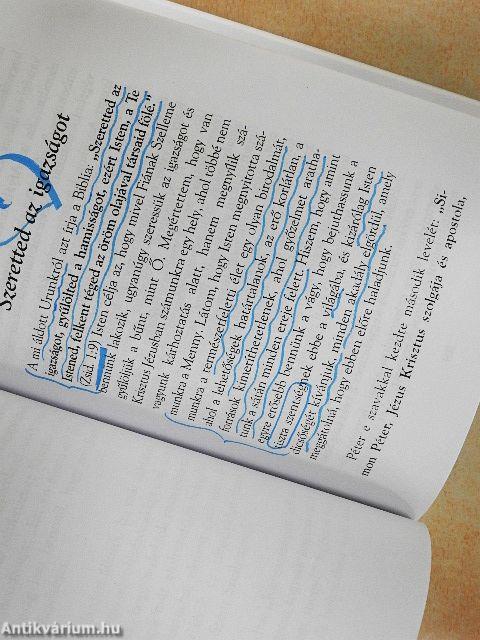 Szeretted az igazságot
A mi áldott Urunkról azt írja a Biblia: „Szeretted az
igazságot, gyűlölted a hamisságot, ezért Isten, a Te
Istened, felkent téged az öröm olajával társaid fölé.”
(Zsid. 1:9) Isten célja az, hogy mivel Fiának Szelleme
bennünk lakozik, ugyanúgy szeressük az igazságot és
gyűlöljük a bűnt, mint Ő. Megérettem, hogy van
Krisztus Jézusban számunkra egy hely, ahol többé nem
vagyunk kárhoztatás alatt, hanem megnyílik szá-
munkra a Menny. Látom, hogy Isten megnyitotta szá-
munkra a természetfeletti élet egy olyan birodalmát,
ahol a lehetőségek határtalanok, az erő korlátlan, a
források kimeríthetetlenek, ahol győzelmet aratha-
tunk a sátán minden ereje felett. Hiszem, hogy amint
egyre erősebb bennünk a vágy, hogy bejuthassunk a
tiszta szentségnek ebbe a világába, és kizárólag Isten
dicsőségét kívánjuk, minden akadály elgördül, amely
meggátolná, hogy ebben előre haladjunk.
Péter e szavakkal kezdte második levelét: „Si-
mon Péter, Jézus Krisztus szolgája és apostola,
Antikvárium.hu